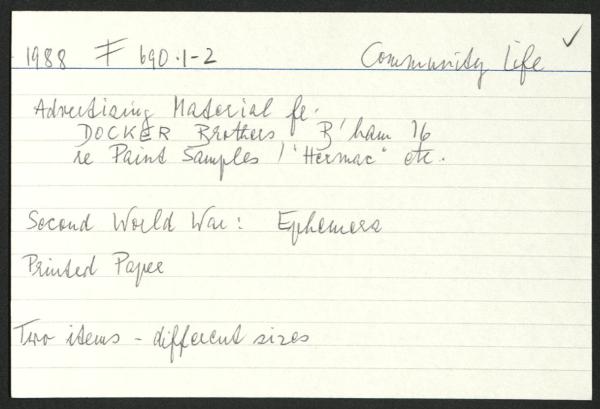 1988 F 690.1-2 Community Life ✓
Advertising Material fr.
DOCKER Brothers B'ham 16
re Paint Samples / "Hermac" etc.
Second World War: Ephemera
Printed Paper
Two items - different sizes